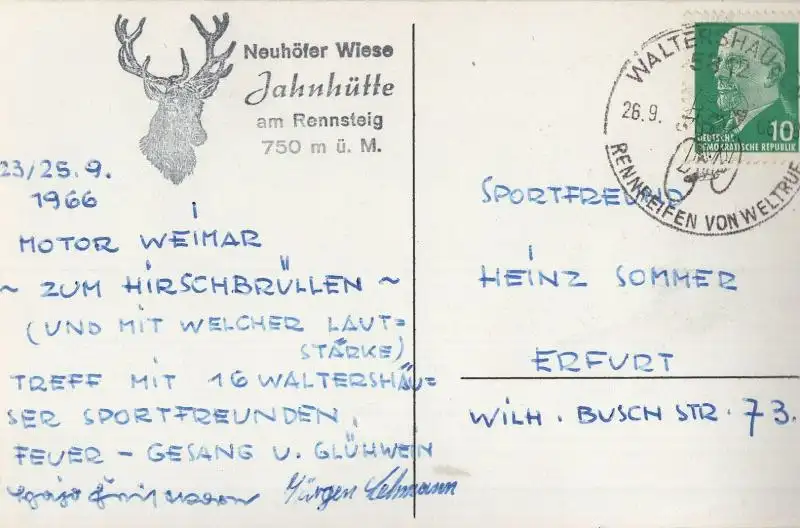 Neuhöfer Wiese
Jahnhütte
am Rennsteig
750 m ü. M.
23/25.9.
1966
MOTOR WEIMAR
~ ZUM HIRSCHBRÜLLEN ~
(UND MIT WELCHER LAUT=
STÄRKE)
TREFF MIT 16 WALTERSHÄU=
SER SPORTFREUNDEN.
FEUER – GESANG U. GLÜHWEIN
Jürgen Lehmann
WALTERSHAUSEN
5812
26.9.
RENNREIFEN VON WELTRUF
10
DEUTSCHE
DEMOKRATISCHE REPUBLIK
SPORTFREUND
HEINZ SOMMER
ERFURT
WILH. BUSCH STR. 73.